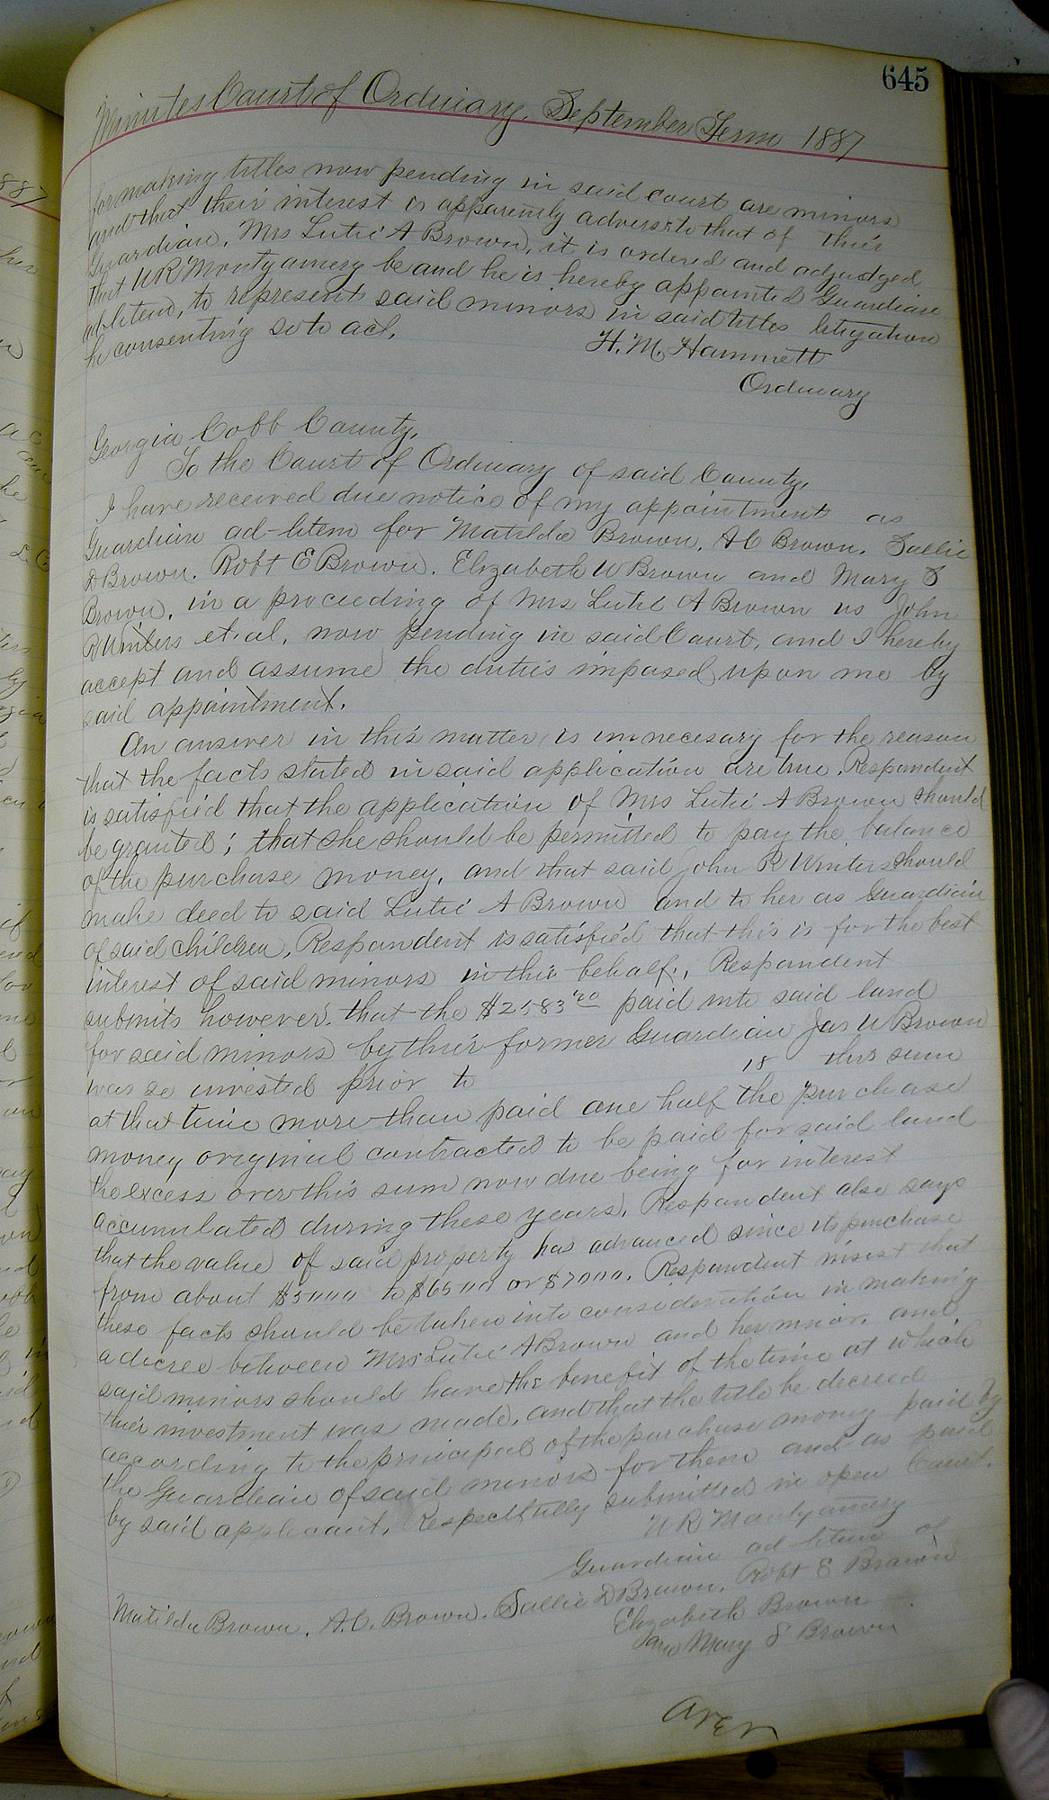 645
Minutes Court of Ordinary, September Term 1887
for making titles now pending in said court are minors
and that their interest is apparently adverse to that of their
Guardian, Mrs Lutie A Brown, it is ordered and adjudged
that W R Montgomery be and he is hereby appointed Guardian
ad-litem, to represent said minors in said titles litigation
he consenting so to act.
H. M. Hammett
Ordinary
Georgia Cobb County.
To the Court of Ordinary of said County,
I have received due notice of my appointment as
Guardian ad-litem for Matilda Brown, A C Brown. Sallie
D Brown. Robt E Brown. Elizabeth W Brown and Mary S
Brown, in a proceeding of Mrs Lutie A Brown vs John
R Winters et. al, now pending in said Court, and I hereby
accept and assume the duties imposed upon me by
said appointment.
An answer in this matter is unnecesary for the reason
that the facts stated in said application are true. Respondent
is satisfied that the application of Mrs Lutie A Brown should
be granted; that she should be permitted to pay the balance
of the purchase money, and that said John R Winters should
make deed to said Lutie A Brown and to her as Guardian
of said children, Respondent is satisfied that this is for the best
interest of said minors in this behalf., Respondent
submits however, that the $2583 paid into said land
for said minors by their former Guardian Jas W Brown
was so invested prior to 18 this sum
at that time more than paid one half the purchase
money original contracted to be paid for said land
the excess over this sum now due being for interest
accumulated during these years, Respondent also says
that the value of said property has advanced since its purchase
from about $5000 to $6500 or $7000. Respondent insist that
these facts should be taken into consideration in making
a decree between Mrs Lutie A Brown and her minor. and
said minors should have the benefit of the time at which
their investment was made, and that the title be decreed
according to the principal of the purchase money paid by
the Guardian of said minors for them and as paid
by said applicant. Respectfully submitted in open Court.
W R Montgomery
Guardian ad litem of
Matilda Brown, A. C. Brown. Sallie D Brown, Robt E Brown
Elizabeth Brown
and Mary S Brown
over